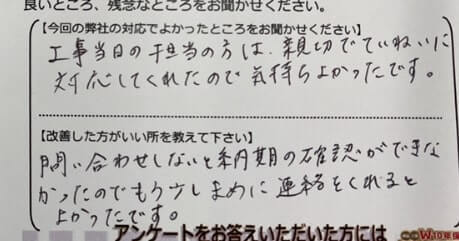 良いところ、残念なところをお聞かせください。
【今回の弊社の対応でよかったところをお聞かせください】
工事当日の担当の方は、親切でていねいに
対応してくれたので気持ちよかったです。
【改善した方がいい所を教えて下さい】
問い合わせしないと納期の確認ができな
かったのでもう少しまめに連絡をくれると
よかったです。
アンケートをお答えいただいた方には
W10年保